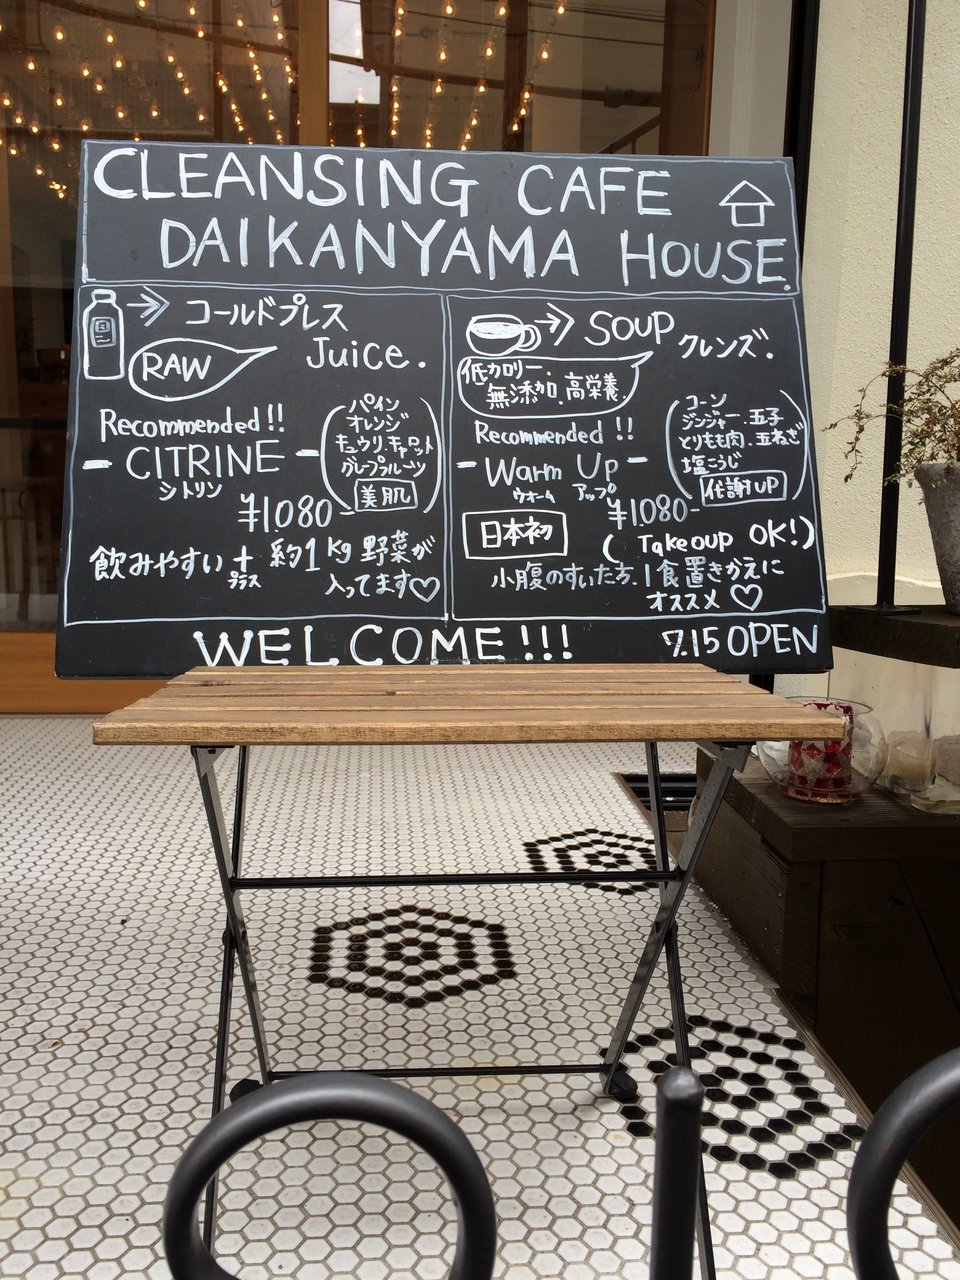 CLEANSING CAFE
DAIKANYAMA HOUSE.
コールドプレス
Juice.
RAW
Recommended!!
- CITRINE -
シトリン
パイン
オレンジ
キュウリ キャロット
グレープフルーツ
美肌
¥1.080-
飲みやすい + 約1kg 野菜が
プラス
入ってます♡
SOUP クレンズ.
低カロリー.
無添加.高栄養.
Recommended!!
- Warm Up -
ウォーム アップ
コーン
ジンジャー.玉子
とりもも肉.玉ねぎ
塩こうじ
代謝UP
¥1.080-
日本初
( Takeoup OK!)
小腹のすいた方.1食置きかえに
オススメ♡
WELCOME!!!
7.15 OPEN